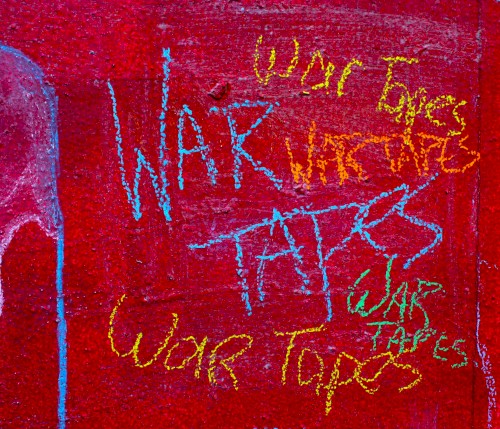 War Tapes
WAR
WAR TAPES
TAPES
WAR
TAPES
War Tapes